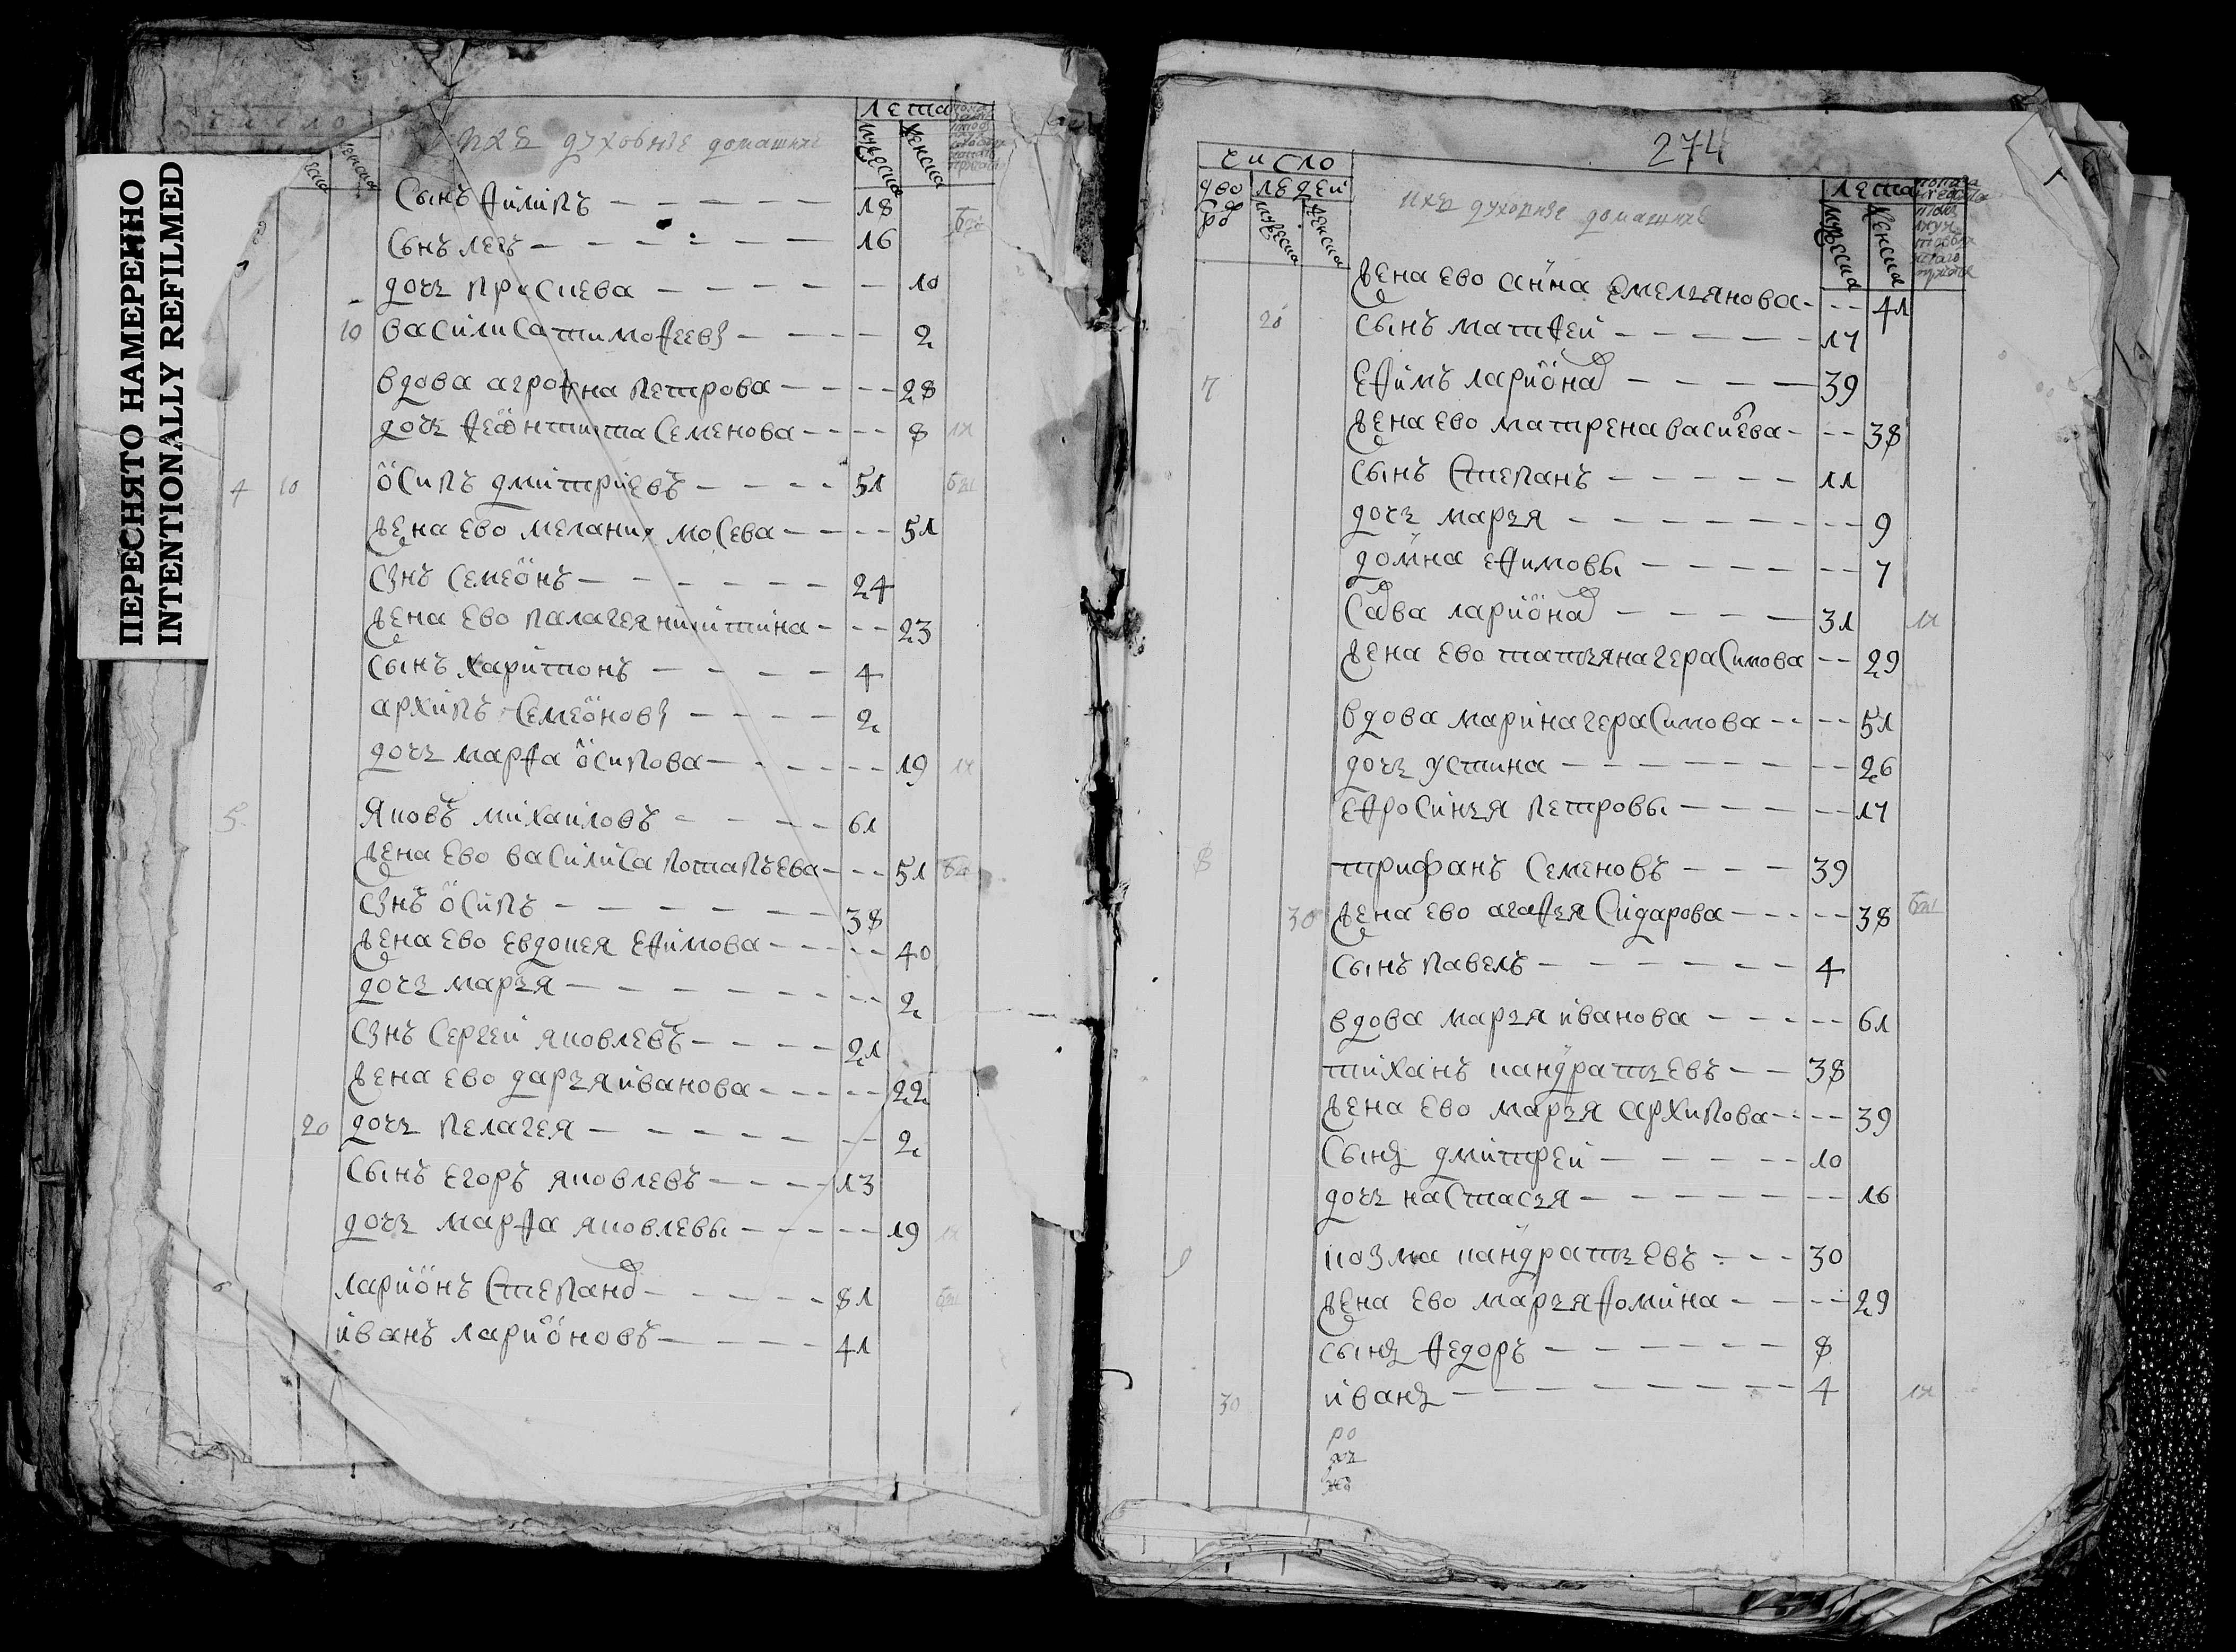 ПЕРЕСНЯТО НАМЕРЕННО
INTENTIONALLY REFILMED
число
лета
ихъ духовные домашние
мужеска
женска
сынъ ѳилипъ 18
сынъ левъ 16
дочь праскева 10
10 василиса тимоѳеевы 2
вдова агроѳена петрова 28
дочь ѳеѡнтиста семенова 8
4 10 ӧсипъ дмитриевъ 51
жена ево мелания мосева 51
сынъ семеӧнъ 24
жена ево палагея никитина 23
сынъ харитонъ 4
архипъ семеӧновы 2
дочь марѳа ӧсипова 19
5 яковъ михаиловъ 61
жена ево василиса потапъева 51
сынъ ӧсипъ 38
жена ево евдокея еѳимова 40
дочь марья 2
сынъ сергей яковлевъ 21
жена ево дарья иванова 22
20 дочь пелагея 2
сынъ егоръ яковлевъ 13
дочь марѳа яковлевы 19
6 лариӧнъ степанов 81
иванъ лариӧновъ 41
274
число
дворовъ
людей
мужеска
женска
ихъ духовные домашние
лета
мужеска
женска
жена ево анна емельянова 41
20 сынъ матѳей 17
7 еѳимъ лариӧнов 39
жена ево матрена васильева 38
сынъ степанъ 11
дочь марья 9
домна еѳимовы 7
савва лариӧнов 31
жена ево татьяна герасимова 29
вдова марина герасимова 51
дочь устина 26
еѳросинья петровы 17
8 трифанъ семеновъ 39
30 жена ево агаѳья сидарова 38
сынъ павелъ 4
вдова марья иванова 61
тиханъ кандратьевъ 38
жена ево марья архипова 39
сынъ дмитрей 10
дочь настасья 16
9 козма кандратьевъ 30
жена ево марья ѳомина 29
сынъ ѳедоръ 8
30 иванъ 4